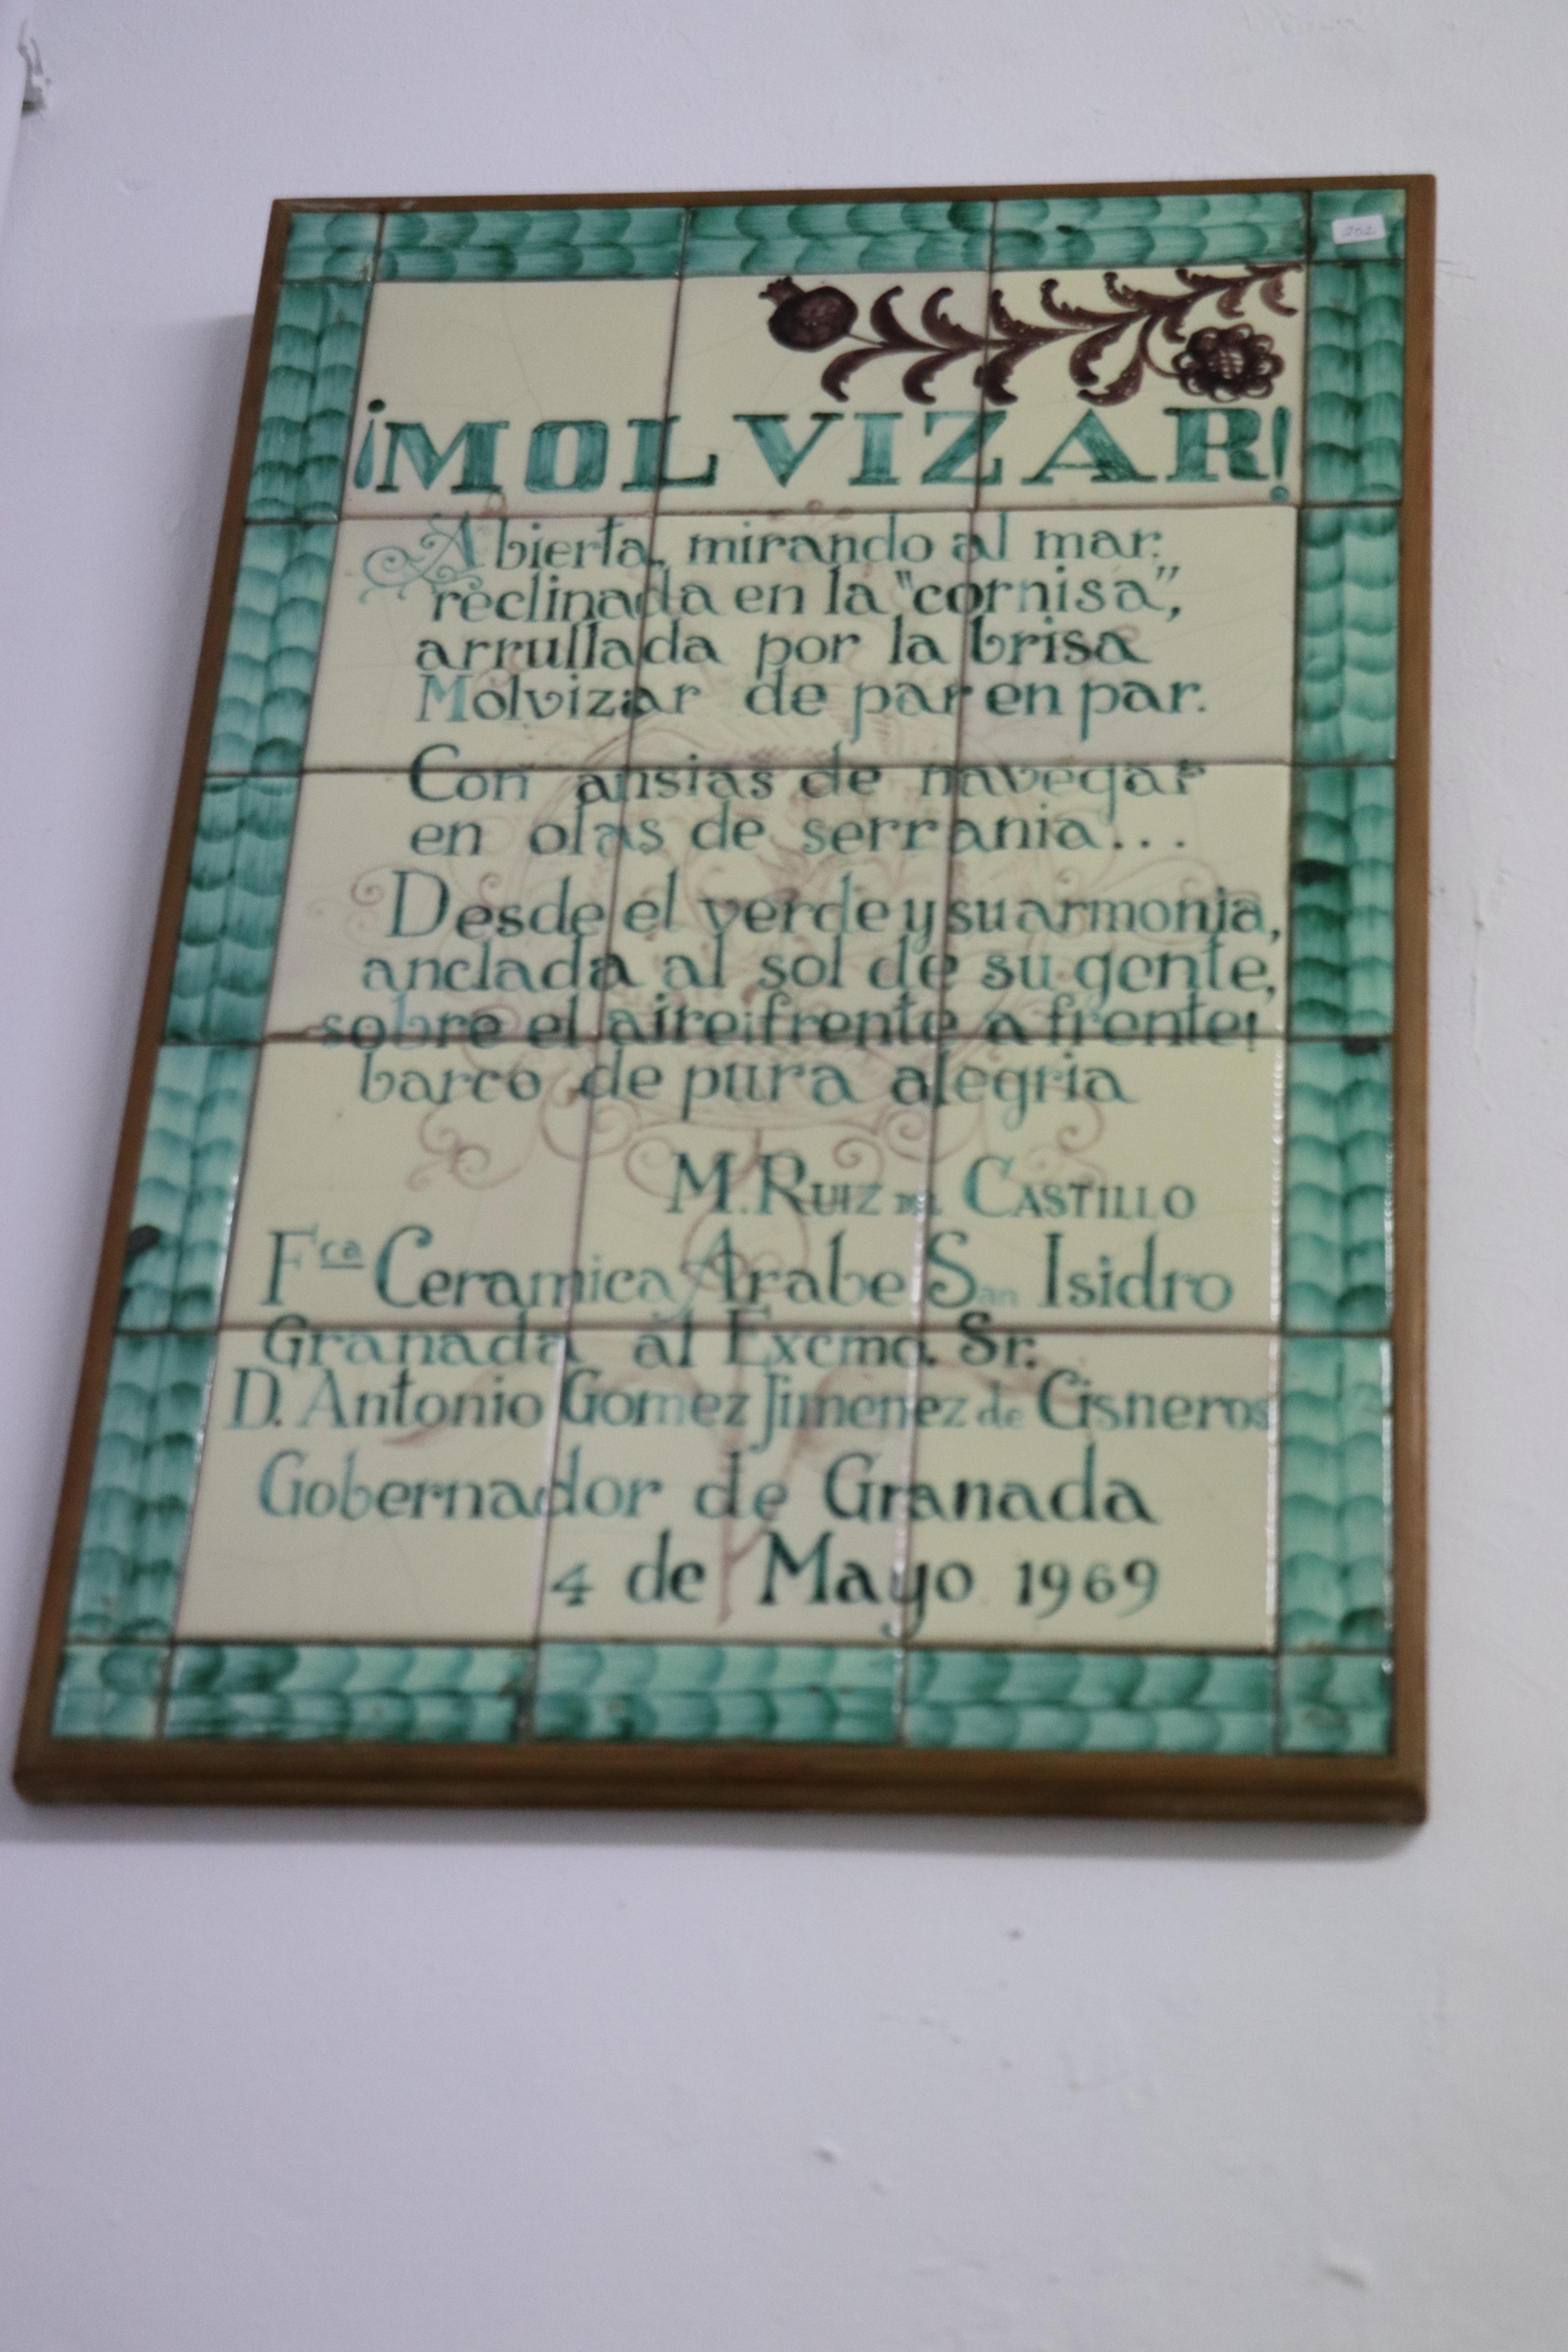 202
¡MOLVIZAR!
Abierta, mirando al mar.
reclinada en la "cornisa",
arrullada por la brisa
Molvizar de par en par.
Con ansias de navegar
en olas de serrania...
Desde el verde y su armonia,
anclada al sol de su gente,
sobre el aire¡frente a frente!
barco de pura alegria
M. RUIZ DEL CASTILLO
Fca Ceramica Arabe San Isidro
Granada al Excmo. Sr.
D. Antonio Gomez Jimenez de Cisneros
Gobernador de Granada
4 de Mayo 1969